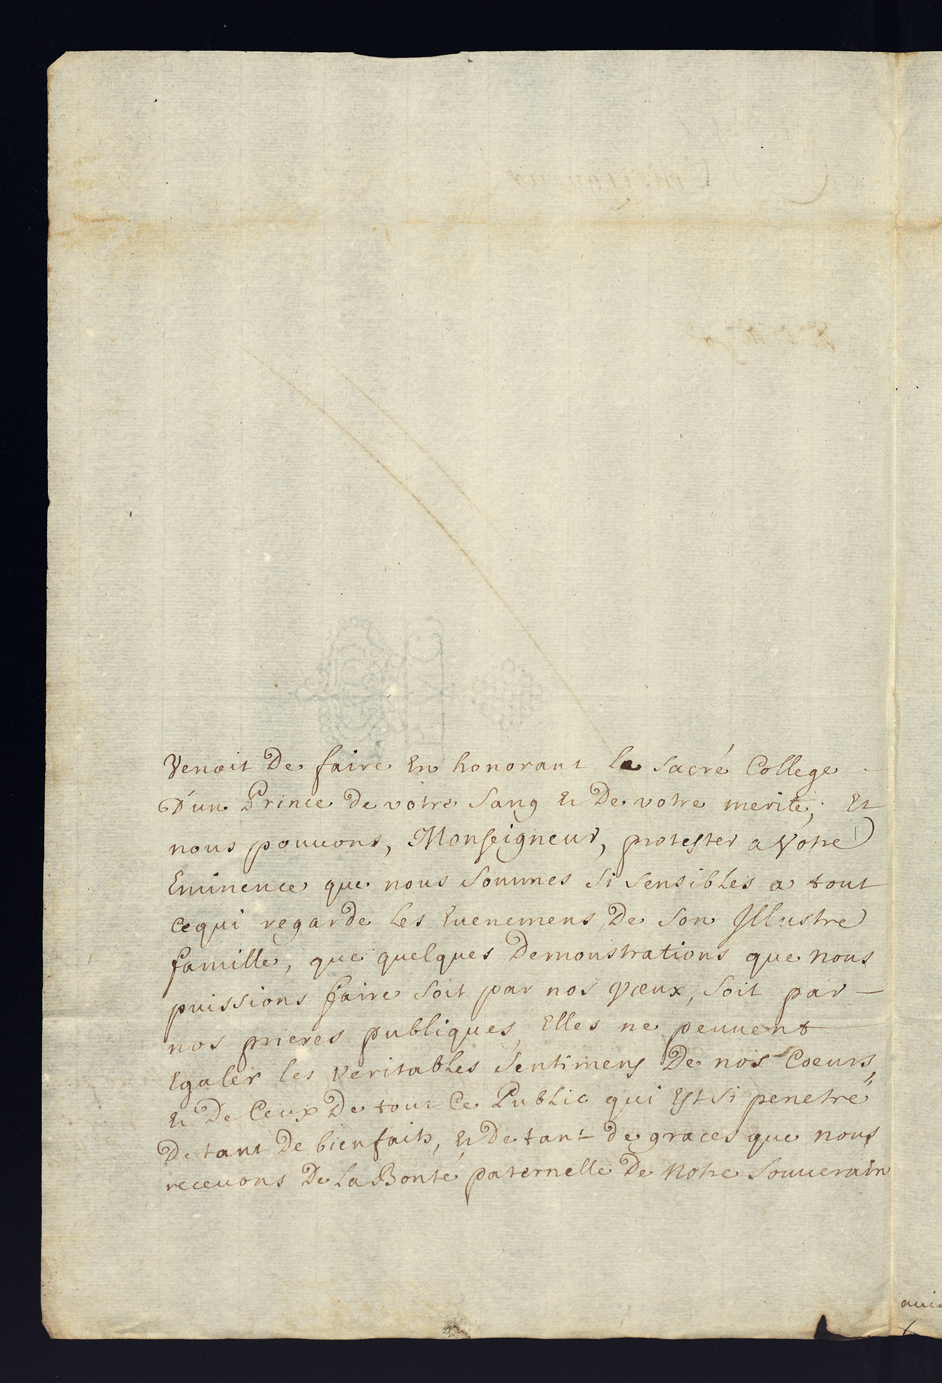 Venoit De faire En honorant le Sacré College –
D'un Prince de votre Sang Et De votre merite; Et
nous pouuons, Monseigneur, protester a Votre
Eminence que nous Sommes Si Sensibles a tout
cequi regarde les Euenemens De Son Illustre
famille, que quelques Demonstrations que nous
puissions faire Soit par nos Vœux, Soit par –
nos prieres publiques, Elles ne peuuent
Egaler les veritables Sentimens De nos Coeurs,
Et De Ceux De tout Ce Public qui Est Si penetré
De tant De bienfaits, Et De tant de graces que nous
receuons De La Bonté paternelle De Notre Souuerain